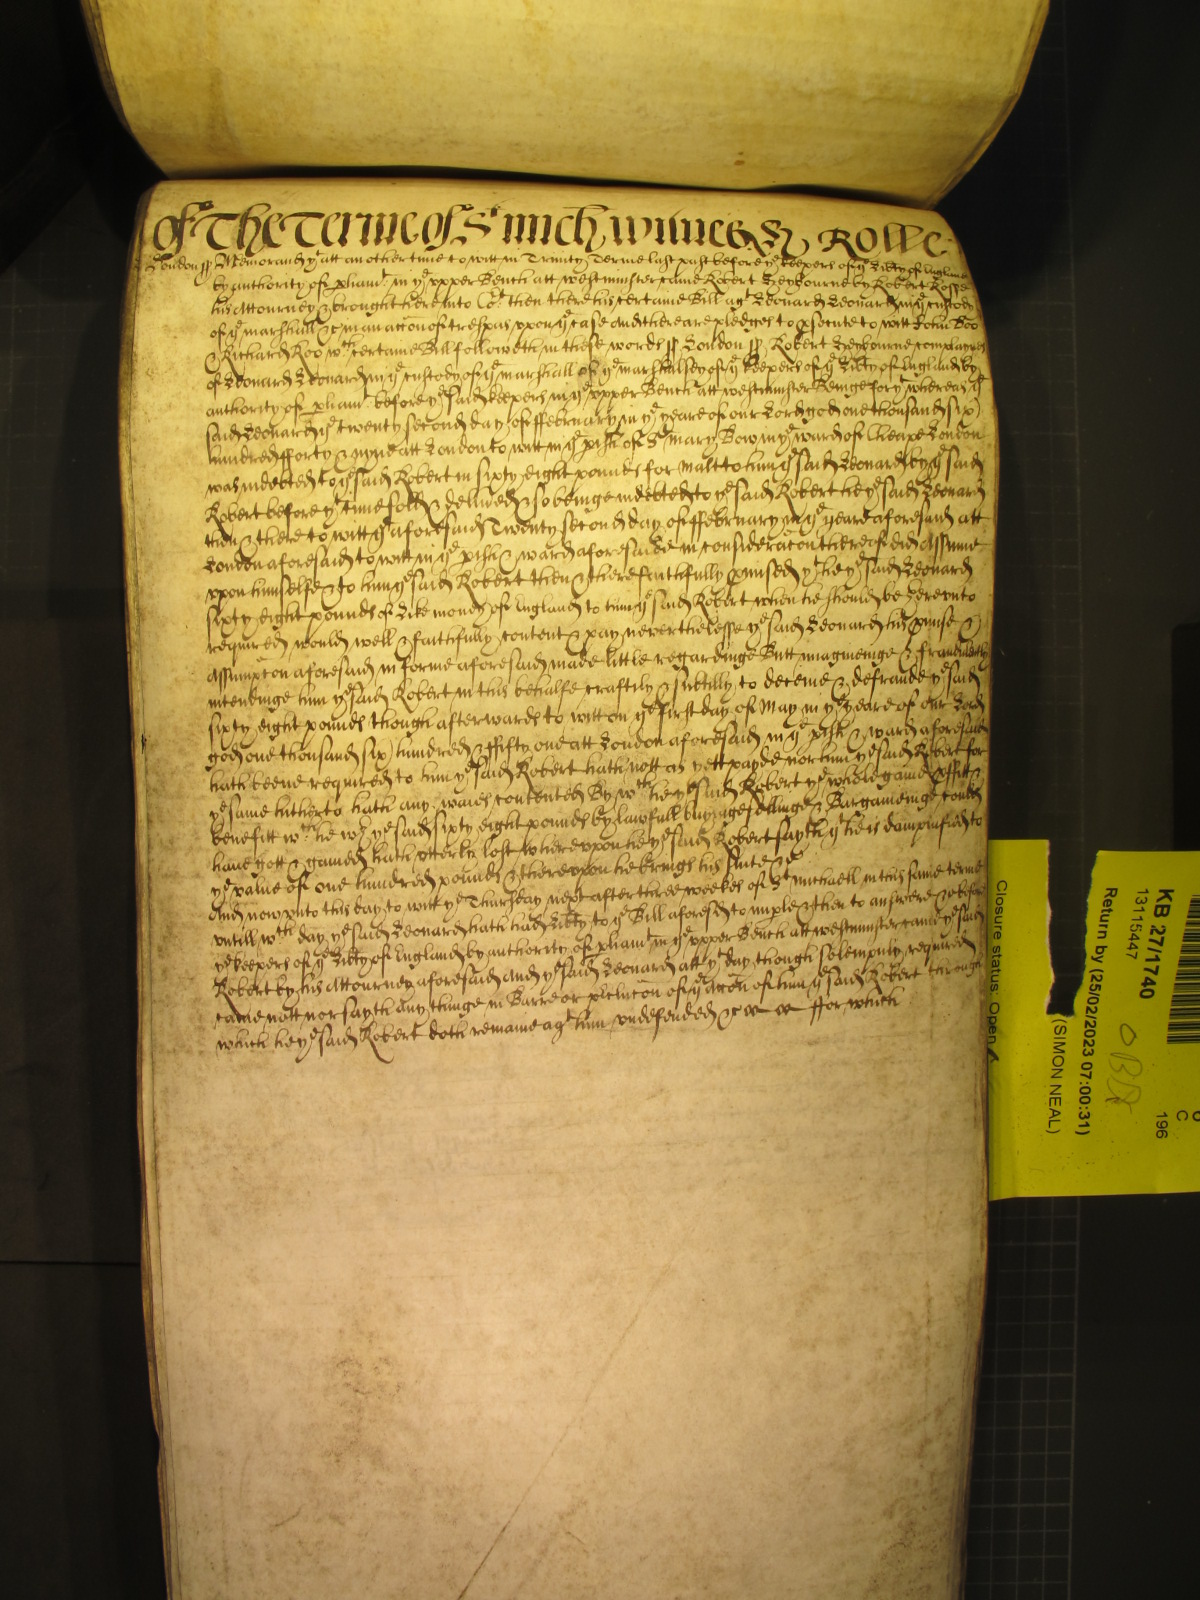 Of The Terme of St Mich Winck & Rolle
London ss Memorand yt att an other time to witt in Trinity Terme last past before ye keepers of ye Liberty of England
by authority of pliamt in ye upper Bench att Westminster came Robert Leybourne by Robert Rosse
his Attourney & brought here into Cort then there his certaine Bill agt Leonard Leonard in ye custody
of ye marshall &c in an accon of trespas uppon ye case And there are pledges to psecute to witt John Doo
& Richard Roo wch certaine Bill followeth in these words ss London ss Robert Leybourne complaynes
of Leonard Leonard in ye custody of ye marshall of ye marshalsey of ye keepers of ye Liberty of England by
authority of pliamt before ye said keepers in ye upper Bench att Westminster Beinge for yt whereas ye
said Leonard ye twenty second day of ffebruary in ye yeare of our Lord god one thousand six
hundred fforty & nyne att London to witt in ye pish of St Mary Bow in ye ward of Cheape London
was indebted to ye said Robert in sixty eight pounds for Malt to him ye said Leonard by ye said
Robert before yt time sold & delivered & so beinge indebted to ye said Robert he ye said Leonard
then & there to witt ye aforesaid Twenty second day of ffebruary in ye yeare aforesaid att
London aforesaid to witt in ye pish & ward aforesaid in consideracon thereof did Assume
uppon himselfe & to him ye said Robert then & there faithfully pmised yt he ye said Leonard
sixty eight pounds of Like money of England to him ye said Robert when he should be thereunto
required would well & faithfully content & pay nevertheless ye said Leonard his pmise &
Assumpcon aforesaid in forme aforesaid made little regardinge Butt imagineinge & fraudulently
intendinge him ye said Robert in this behalfe craftily & subtilly to deceive & defraude ye said
sixty eight pounds though afterwards to witt on ye first day of May in ye yeare of our Lord
god one thousand six hundred & ffifty one att London aforesaid in ye pish & ward aforesaid
hath beene required to him ye said Robert hath nott as yett payde nor him ye said Robert for
ye same hitherto hath any waies contented By wch he ye said Robert ye whole gaine pffitt &
benefitt wch he wth ye said sixty eight pounds by lawfull buyinge sellinge & Bargaineinge could
have gott & gained hath utterly lost whereuppon he ye said Robert sayth yt he is dampnified to
ye value of one hundred pounds & thereuppon he brings his suite &c
And now unto this day to witt ye Thursday next after three weekes of St Michaell in this same terme
untill wch day ye said Leonard hath had Liberty to ye Bill aforesd to imple & then to answere & before
ye keepers of ye Liberty of England by authority of pliamt in ye upper Bench att Westminster came ye said
Robert by his Attourney aforesaid And ye said Leonard att yt day though solempnly required
came nott nor sayth any thinge in Barre or preclucon of ye accon of him ye said Robert through
which he ye said Robert doth remaine agt him undefended &c ffor which
KB 27/1740
13115447
Return by (25/02/2023 07:00:31)
(SIMON NEAL)
Closure status: Open
C
196